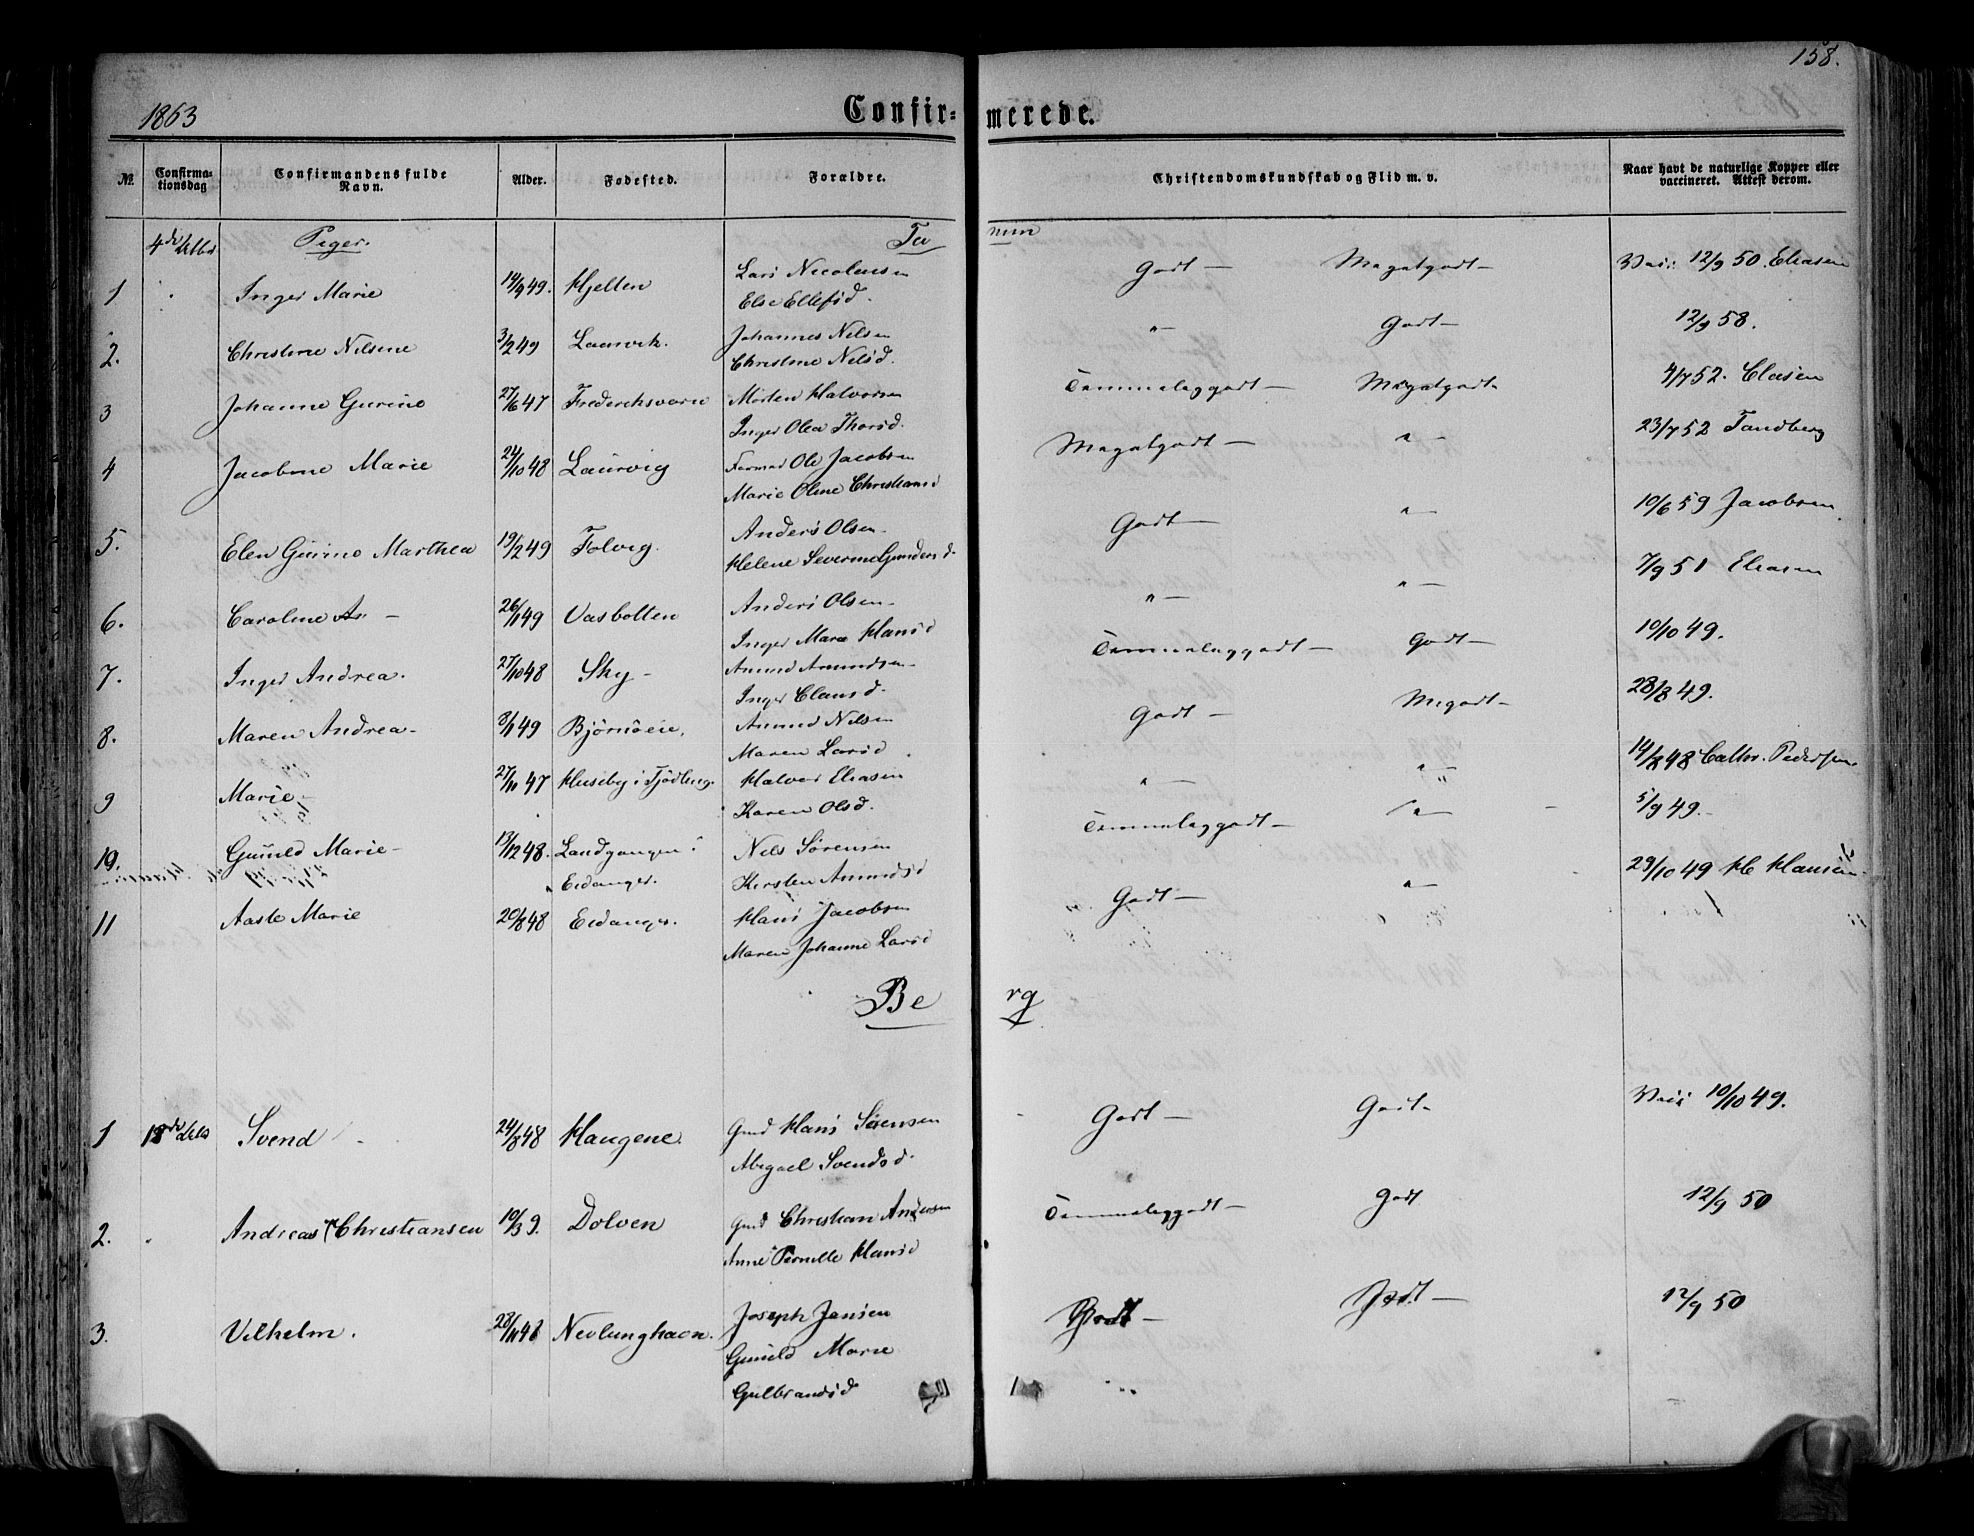 158.
1863 Confir= merede.
№ Confirma-tionsdag Confirmandens fulde Navn. Alder. Fødested. Forældre. Christendomskundskab og Flid m. v. Naar havt de naturlige Kopper eller vaccineret. Attest derom.
4de Piger. Ta num
1 Inger Marie 14/9 49. Hjelten Lars Nicolaisen Godt — Megetgodt — 12/9 50. Eliasen
Else Ellefsd.
2. Christine Nilsine 3/2 49 Laurvik. Johannes Nilsen " — Godt — 12/9 58.
Christine Nelsd.
3 Johanne Gurine 27/6 47 Frederiksværn Morten Halvorsen Temmeleggodt — Megetgodt. 4/7 52. Claesen
Inger Olea Thorsd.
4 Jacobine Marie 24/10 48 Laurvig Ole Jacobsen Megetgodt — " — 23/7 52 Tandberg
Marie Oline Christiansd
5. Elen Gurine Marthea 19/2 49 Folvig. Anders Olsen. Godt — " 10/6 59 Jacobsen.
Helene Severine Gundersd.
6. Caroline — 26/1 49 Vasbotten Anders Olsen — " — " — 7/9 51 Eliasen
Inger Marie Hansd
7. Inger Andrea. 27/10 48 Sky — Amund Amundsen — Temmeleggodt — Godt — 10/10 49.
Inger Clausd.
8. Maren Andrea — 8/1 49 Bjørnøeie. Amund Nilsen Godt — Mgodt — 28/8 49.
Maren Larsd
9 Marie — 27/11 47 Huseby i Tjødling. Halvor Eliasen " — " — 14/8 48 Cathr. Pedersen.
Karen Olsd.
10. Gunild Marie — 13/12 48. Landgangen i Nils Sørensen Temmeleggodt — " — 5/9 49. —
Eidanger. Kirsten Amundsd
11 Aaste Marie 20/8 48 Eidanger. Hans Jacobsen Godt — " — 29/10 49 H Hansen
Maren Johanne Larsd
Be rg
1 18de Svend 24/8 48 Haugene. Gmd Hans Sørensen Godt — Godt. 10/10 49.
Abigael Svendsd.
2. Andreas Christiansen 10/3 9. Dolven Gmd Christian Andersen Temmeleggodt — Godt 12/9 50
Anne Pernille Hansd
3. Vilhelm. 28/11 48 Nevlunghavn. Joseph Jansen Godt — Godt — 12/9 50
Gunild Marie
Gulbrandsd